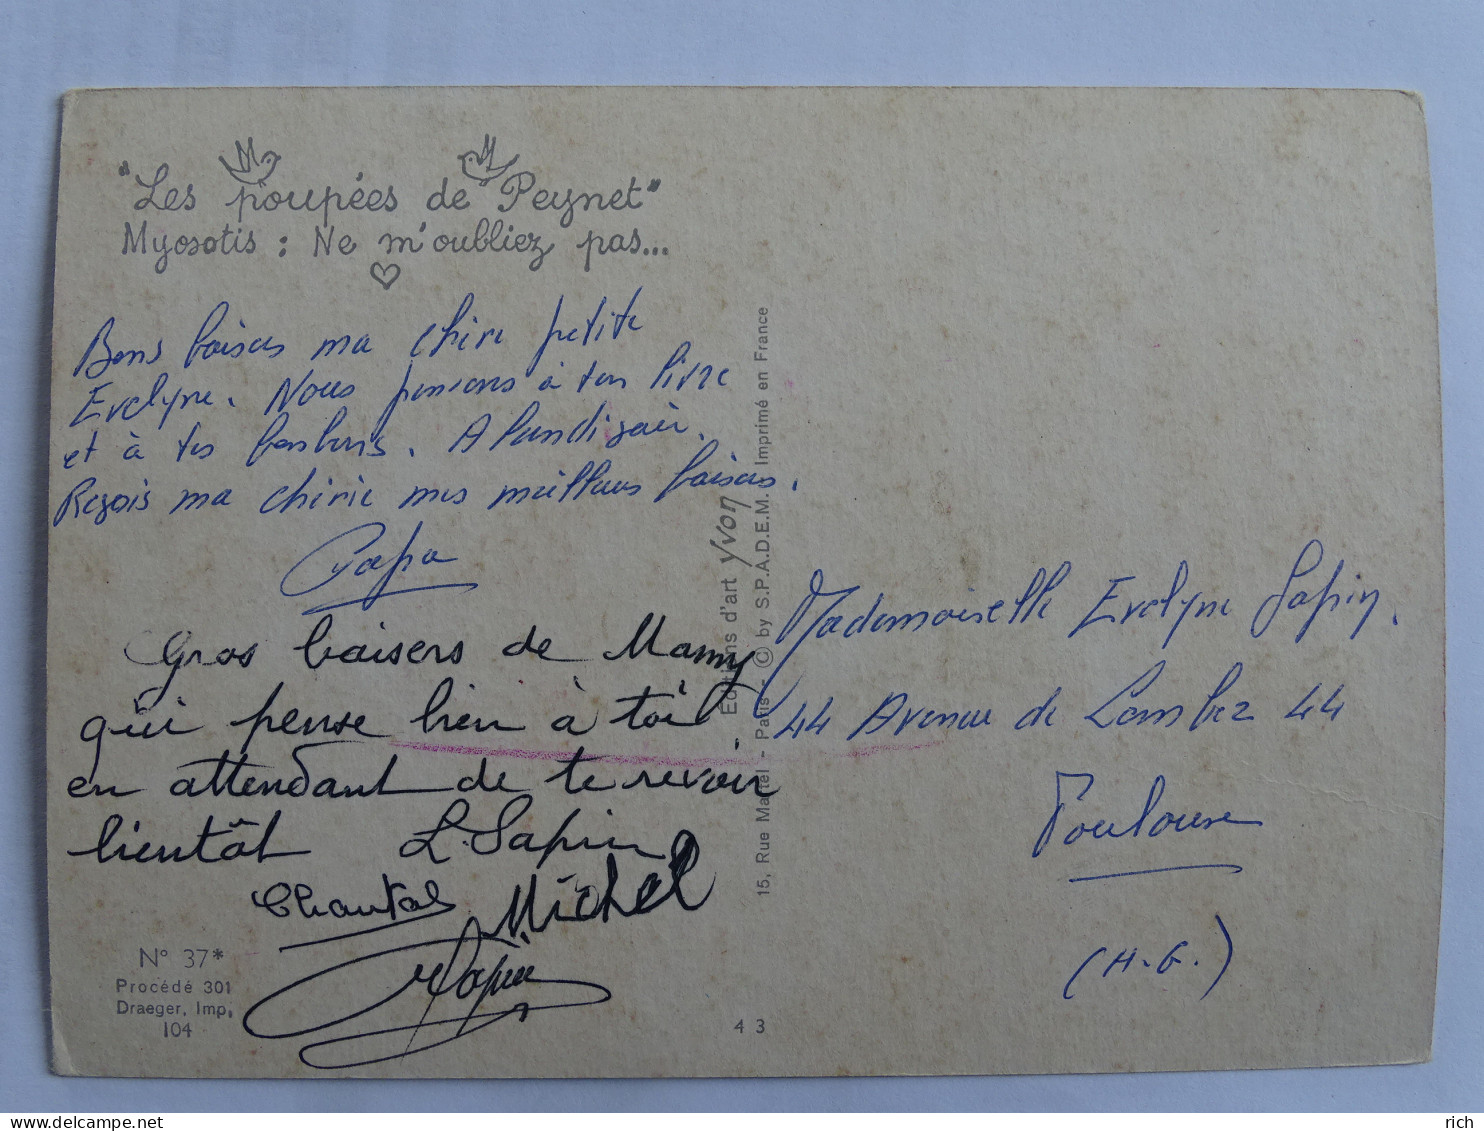 "Les poupées de Peynet"
Myosotis : Ne m'oubliez pas...
Bons baisers ma chérie petite
Evelyne. Nous pensons à ton livre
et à tes bonbons. A
Reçois ma chérie mes meilleurs baisers.
Papa
Gros baisers de Mamy
qui pense bien à toi
en attendant de te revoir
bientôt L. Sapin
Chantal Michel
N° 37*
Procédé 301
Draeger, Imp.
104
Editions d'art Yvon
15, Rue Martel - Paris - © by S.P.A.D.E.M. Imprimé en France
43
Mademoiselle Evelyne Sapin.
44 Avenue de Lombez 44
Toulouse
(H.-G.)
delcampe.net
rich